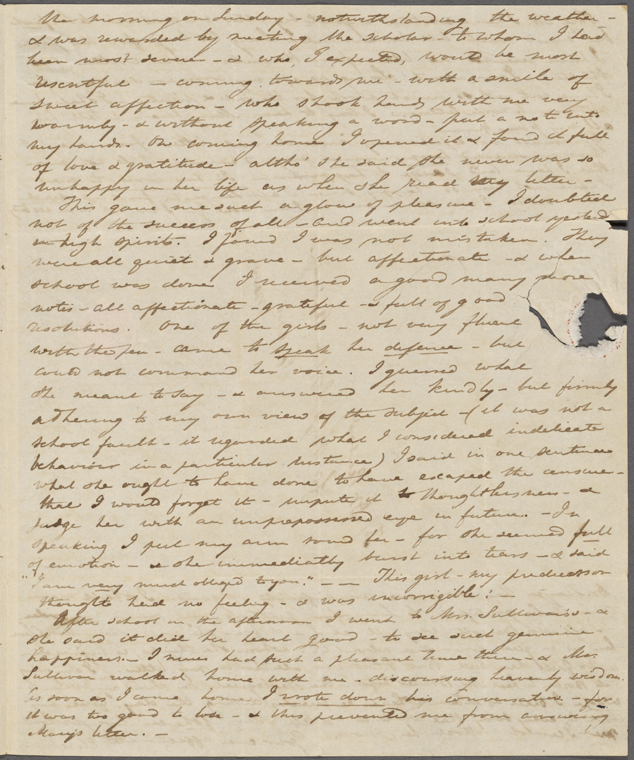 the morning on Sunday - notwithstanding the weather -
& was rewarded by meeting the scholar to whom I had
been most severe - & who, I expected, would be most
resentful - coming towards me - with a smile of
sweet affection - who shook hands with me very
warmly - & without speaking a word - put a note into
my hands. On coming home I opened it & found it full
of love & gratitude - altho' she said she never was so
unhappy in her life as when she read my letter -
This gave me such a glow of pleasure - I doubted
not of the success of all - and went into school yesterd
in high spirits. I found I was not mistaken. They
were all quiet & grave - but affectionate - & when
school was done I received a good many more
notes - all affectionate - grateful - & full of good
resolutions. One of the girls - not very fluent
with the pen - came to speak her defence - but
could not command her voice. I guessed what
she meant to say - & answered her kindly - but firmly
adhering to my own view of the subject - (it was not a
school fault - it regarded what I considered indelicate
behaviour in a particular instance) I said in one sentence
what she ought to have done to have escaped the censure -
that I would forget it - impute it to thoughtlessness - &
judge her with an unprepossessed eye in future. - In
speaking I put my arm round her - for she seemed full
of emotion - & she immediately burst into tears - & said
"I am very much obliged to you." - - This girl - my predecessor
thought had no feeling - & was incorrigible! -
After school in the afternoon I went to Mrs. Sullivan's - &
she said it did her heart good - to see such genuine
happiness - I never had such a pleasant time there - & Mr
Sullivan walked home with me - discoursing heavenly wisdom.
As soon as I came home I wrote down his conversation - for
it was too good to lose - & this prevented me from answering
Mary's letter. -